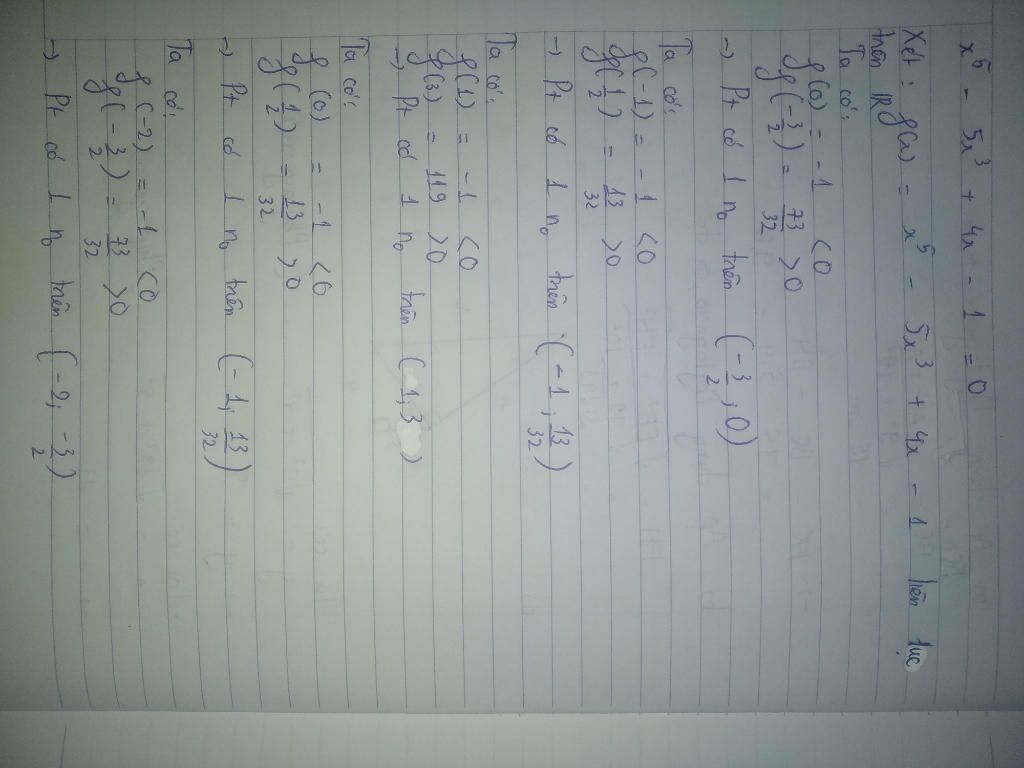 x⁵ - 5x³ + 4x - 1 = 0
Xét: g(x) = x⁵ - 5x³ + 4x - 1 liên tục
trên R
Ta có:
g(0) = -1 < 0
g(-3/2) = 73/32 > 0
→ Pt có 1 n₀ trên (-3/2, 0)
Ta có:
g(-1) = -1 < 0
g(1/2) = 13/32 > 0
→ Pt có 1 n₀ trên (-1, 13/32)
Ta có:
g(1) = -1 < 0
g(3) = 119 > 0
→ Pt có 1 n₀ trên (1, 3)
Ta có:
g(0) = -1 < 0
g(1/2) = 13/32 > 0
→ Pt có 1 n₀ trên (-1, 13/32)
Ta có:
g(-2) = -1 < 0
g(-3/2) = 73/32 > 0
→ Pt có 1 n₀ trên (-2; -3/2)